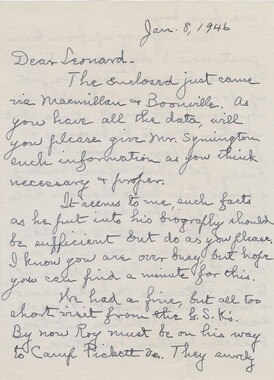 Jan. 8, 1946
Dear Leonard -
The enclosed just came
via Macmillan & Boonville. As
you have all the data, will
you please give Mr. Symington
such information as you think
necessary & proper.
It seems to me, such facts
as he put into his biography should
be sufficient but do as you please.
I know you are over busy but hope
you can find a minute for this.
We had a fine, but all too
short visit from the G.S.K's.
By now Roy must be on his way
to Camp Pickett Va. They surely